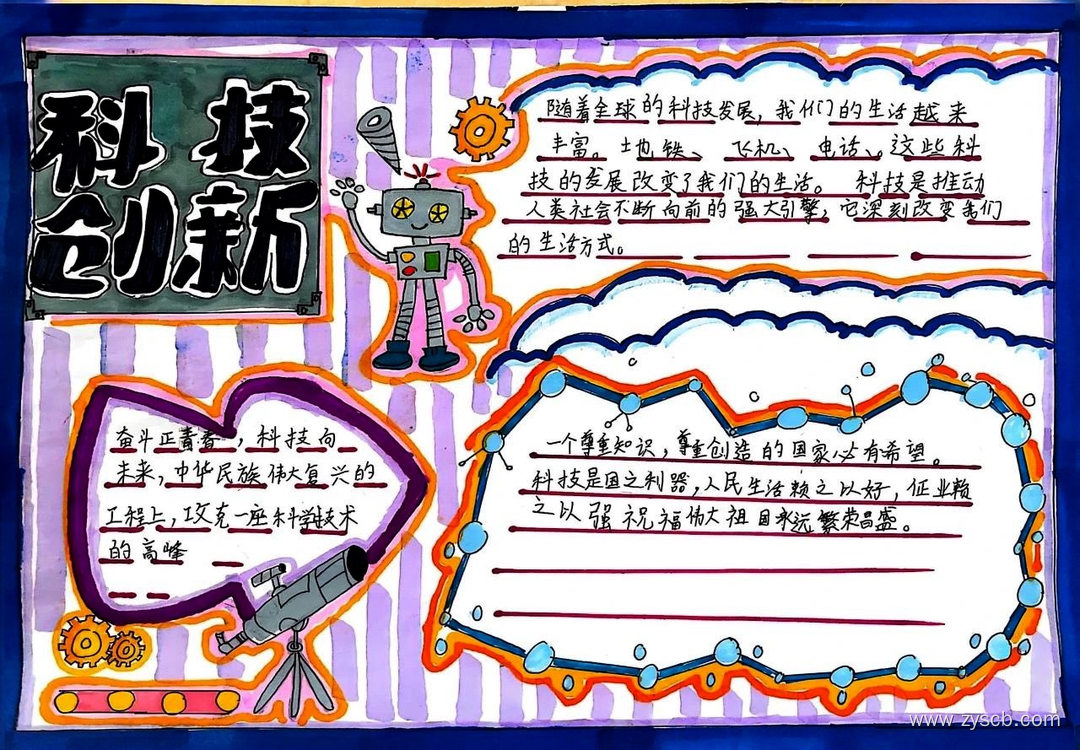 科技
创新
随着全球的科技发展，我们的生活越来
丰富。地铁、飞机、电话、这些科
技的发展改变了我们的生活。科技是推动
人类社会不断向前的强大引擎，它深刻改变我们
的生活方式。
奋斗正青春，科技向
未来，中华民族伟大复兴的
工程上，攻克一座科学技术
的高峰
一个尊重知识，尊重创造的国家必有希望。
科技是国之利器，人民生活赖之以好，征业赖
之以强祝福伟大祖国永远繁荣昌盛。
www.zyscb.com